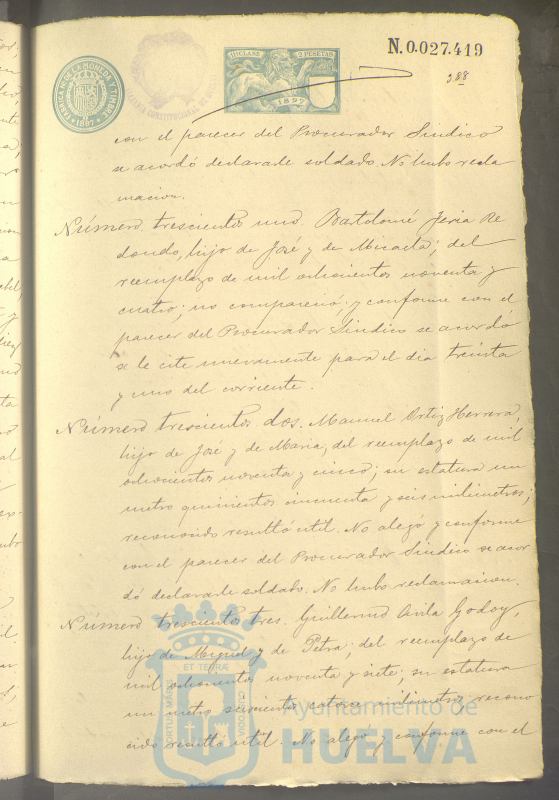 FABRICA DE LA MONEDA Y TIMBRE
1897
11ª CLASE 2 PESETAS
1897
N. 0.027.419
388
con el parecer del Procurador Sindico
se acordó declararle soldado. No hubo recla
macion.
Número trescientos uno. Bartolomé Feria Re
dondo, hijo de José y de Micaela; del
reemplazo de mil ochocientos noventa y
cuatro; no compareció, y conforme con el
parecer del Procurador Sindico se acordó
se le cite nuevamente para el dia treinta
y uno del corriente.
Número trescientos dos. Manuel Ortiz Herrera,
hijo de José y de Maria, del reemplazo de mil
ochocientos noventa y cinco; su estatura un
metro quinientos cincuenta y seis milimetros;
reconocido resultó util. No alegó y conforme
con el parecer del Procurador Sindico se acor
dó declararle soldado. No hubo reclamacion.
Número trescientos tres. Guillermo Avila Godoy,
hijo de Miguel y de Petra; del reemplazo de
mil ochocientos noventa y siete; su estatura
un metro seiscientos catorce milimetros recono
cido resultó util. No alegó y conforme con el
PORTUS MARIS ET TERRÆ CUSTODIA
Ayuntamiento de
HUELVA